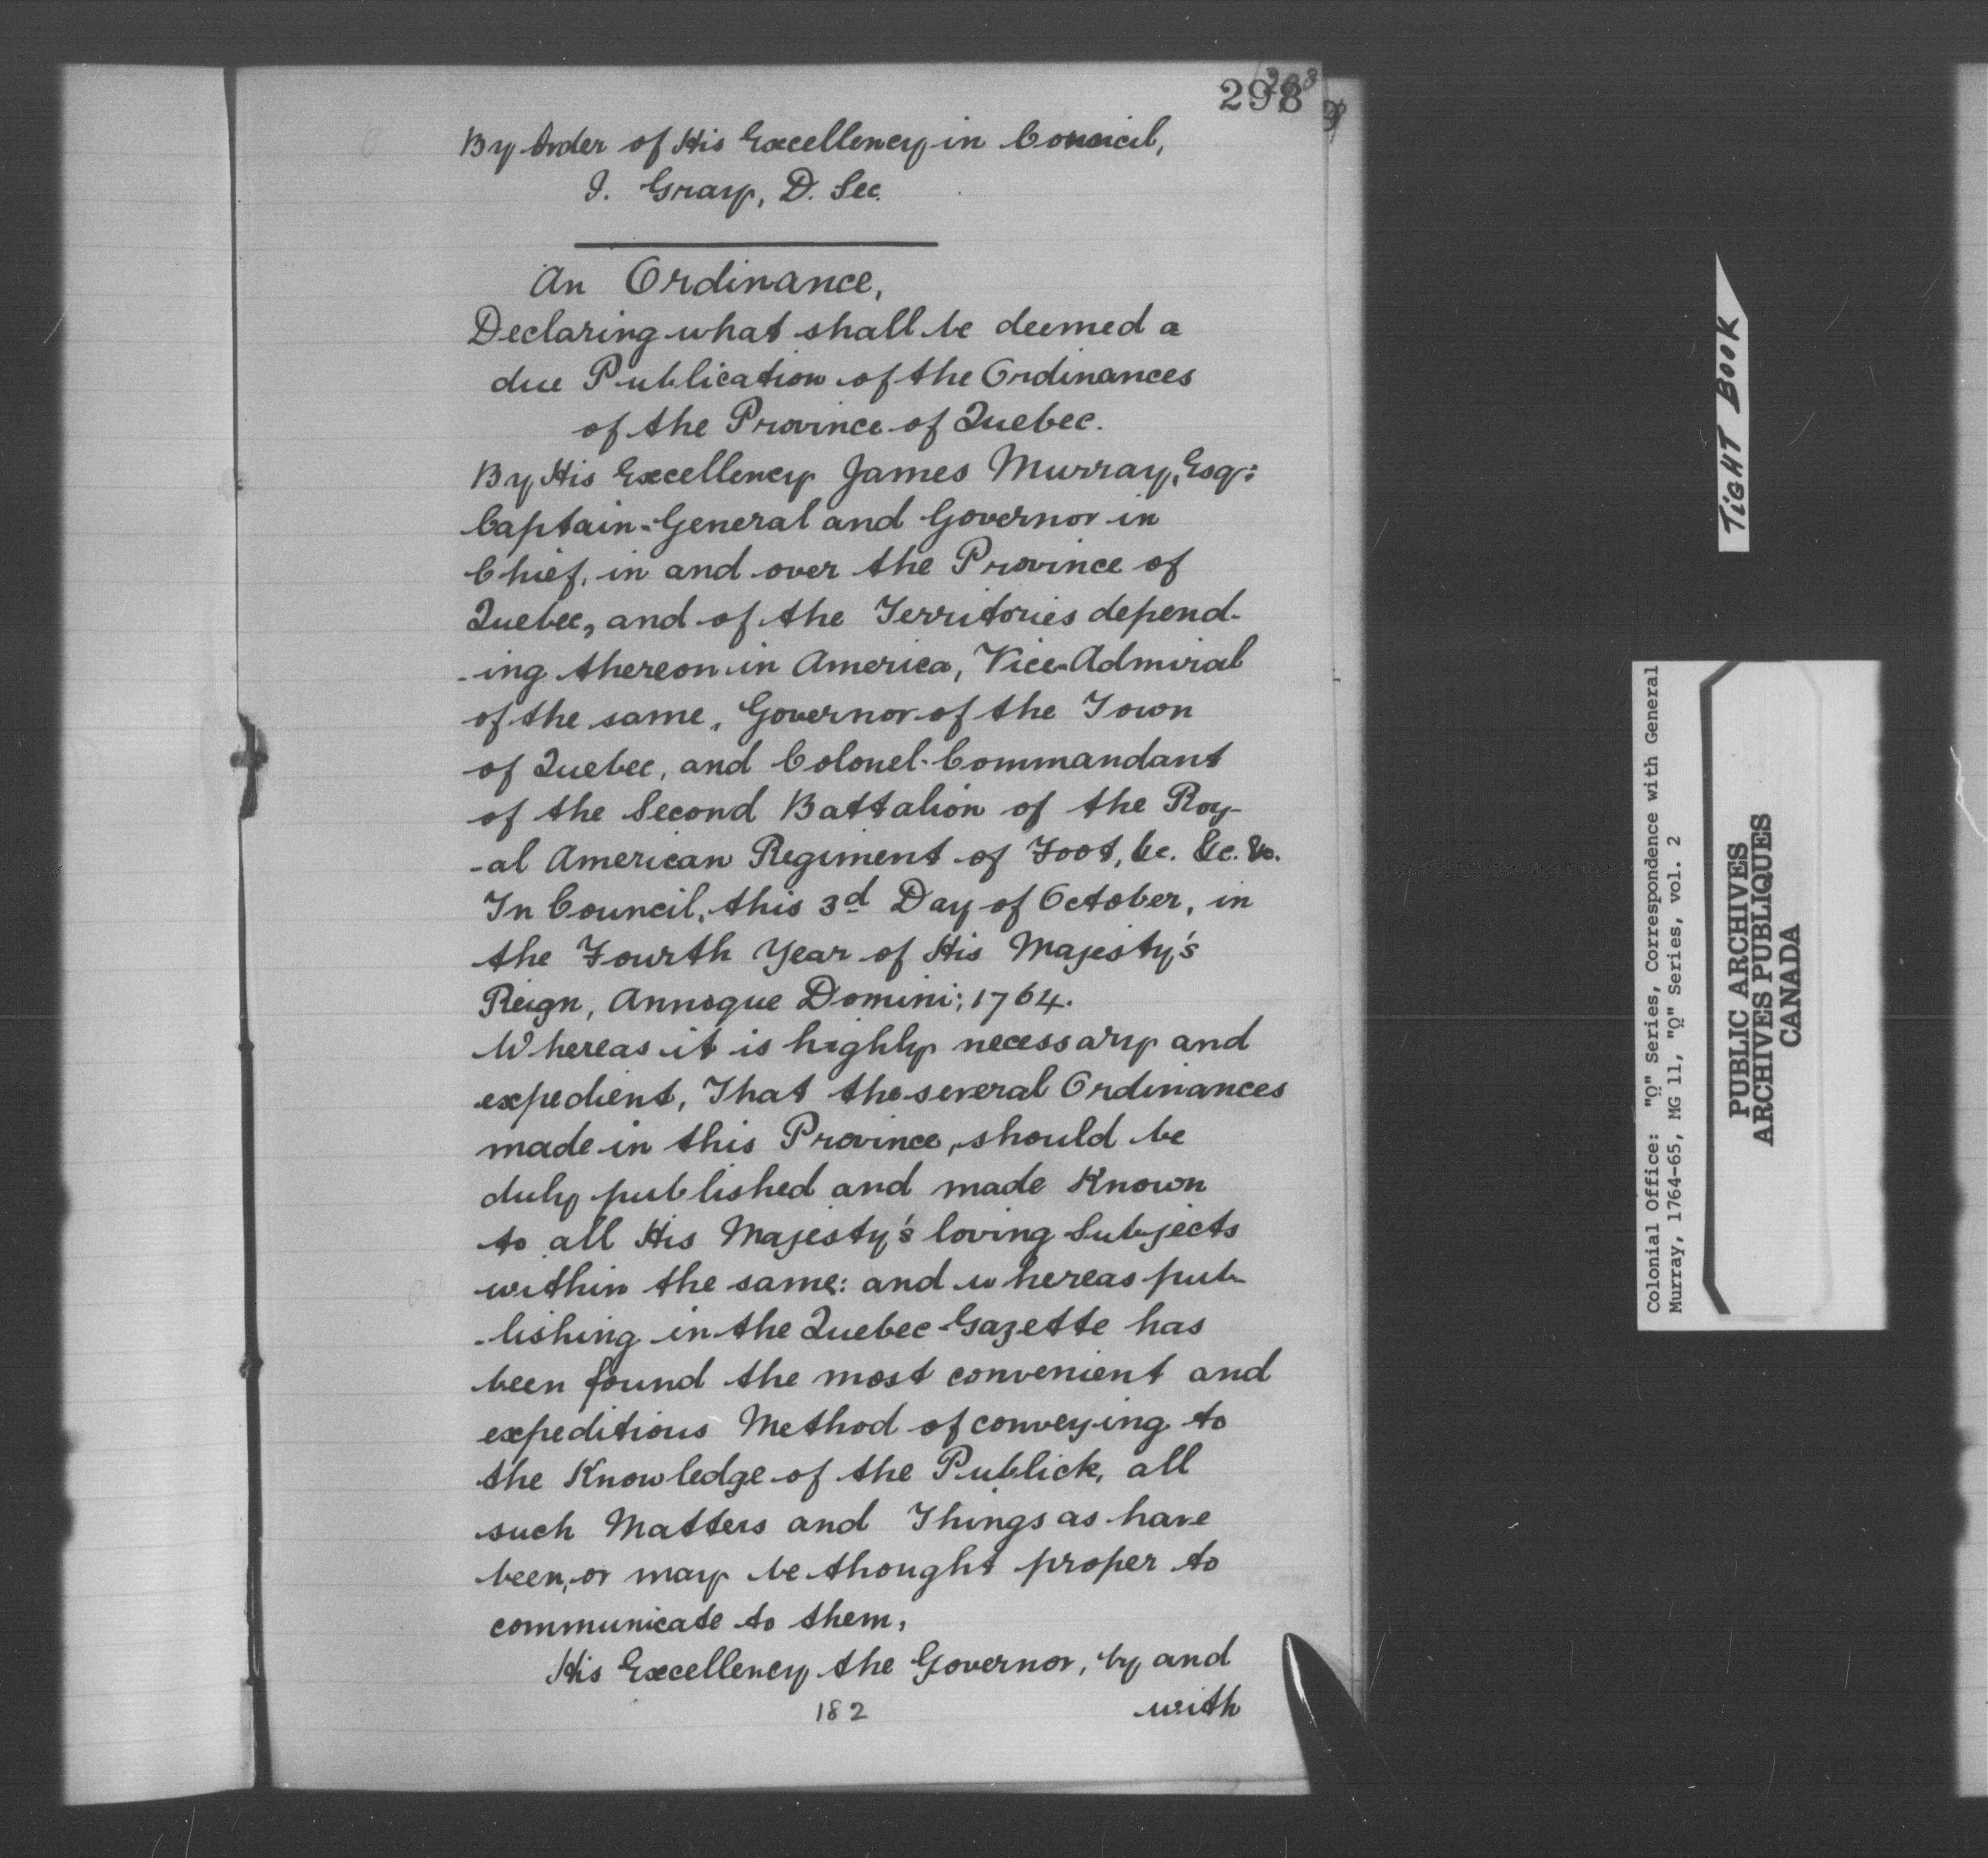 298
By Order of His Excellency in Council,
J. Gray, D. Sec.
An Ordinance,
Declaring what shall be deemed a
due Publication of the Ordinances
of the Province of Quebec.
By His Excellency James Murray, Esq:
Captain-General and Governor in
Chief, in and over the Province of
Quebec, and of the Territories depend-
-ing thereon in America, Vice-Admiral
of the same, Governor of the Town
of Quebec, and Colonel-Commandant
of the Second Battalion of the Roy-
-al American Regiment of Foot, &c. &c. &c.
In Council, this 3d Day of October, in
the Fourth Year of His Majesty's
Reign, Annoque Domini; 1764.
Whereas it is highly necessary and
expedient, That the several Ordinances
made in this Province, should be
duly published and made Known
to all His Majesty's loving Subjects
within the same: and whereas pub-
-lishing in the Quebec-Gazette has
been found the most convenient and
expeditious Method of conveying to
the Knowledge of the Publick, all
such Matters and Things as have
been, or may be thought proper to
communicate to them,
His Excellency the Governor, by and
with
182
TIGHT BOOK
Colonial Office: "Q" Series, Correspondence with General
Murray, 1764-65, MG 11, "Q" Series, vol. 2
PUBLIC ARCHIVES
ARCHIVES PUBLIQUES
CANADA